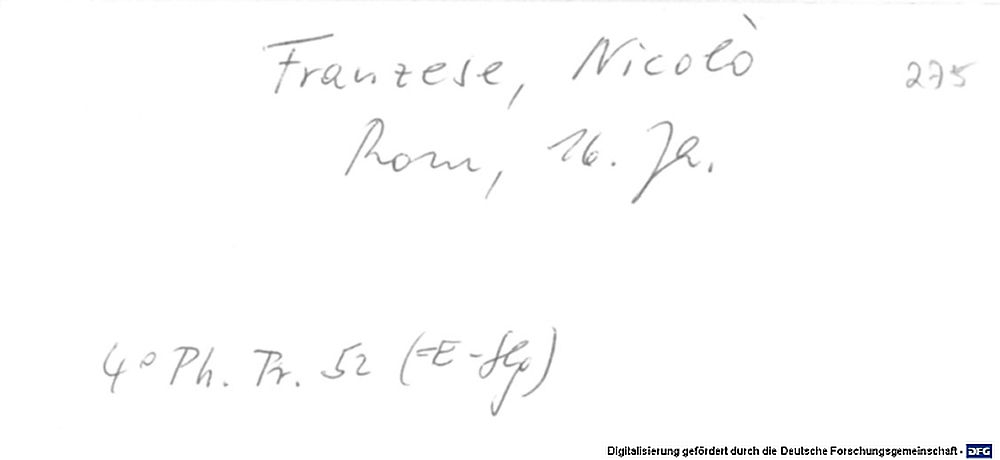 Franzese, Nicolò
275
Rom, 16. Jh.
4° Ph. Pr. 52 (=E-Slg)
Digitalisierung gefördert durch die Deutsche Forschungsgemeinschaft - DFG